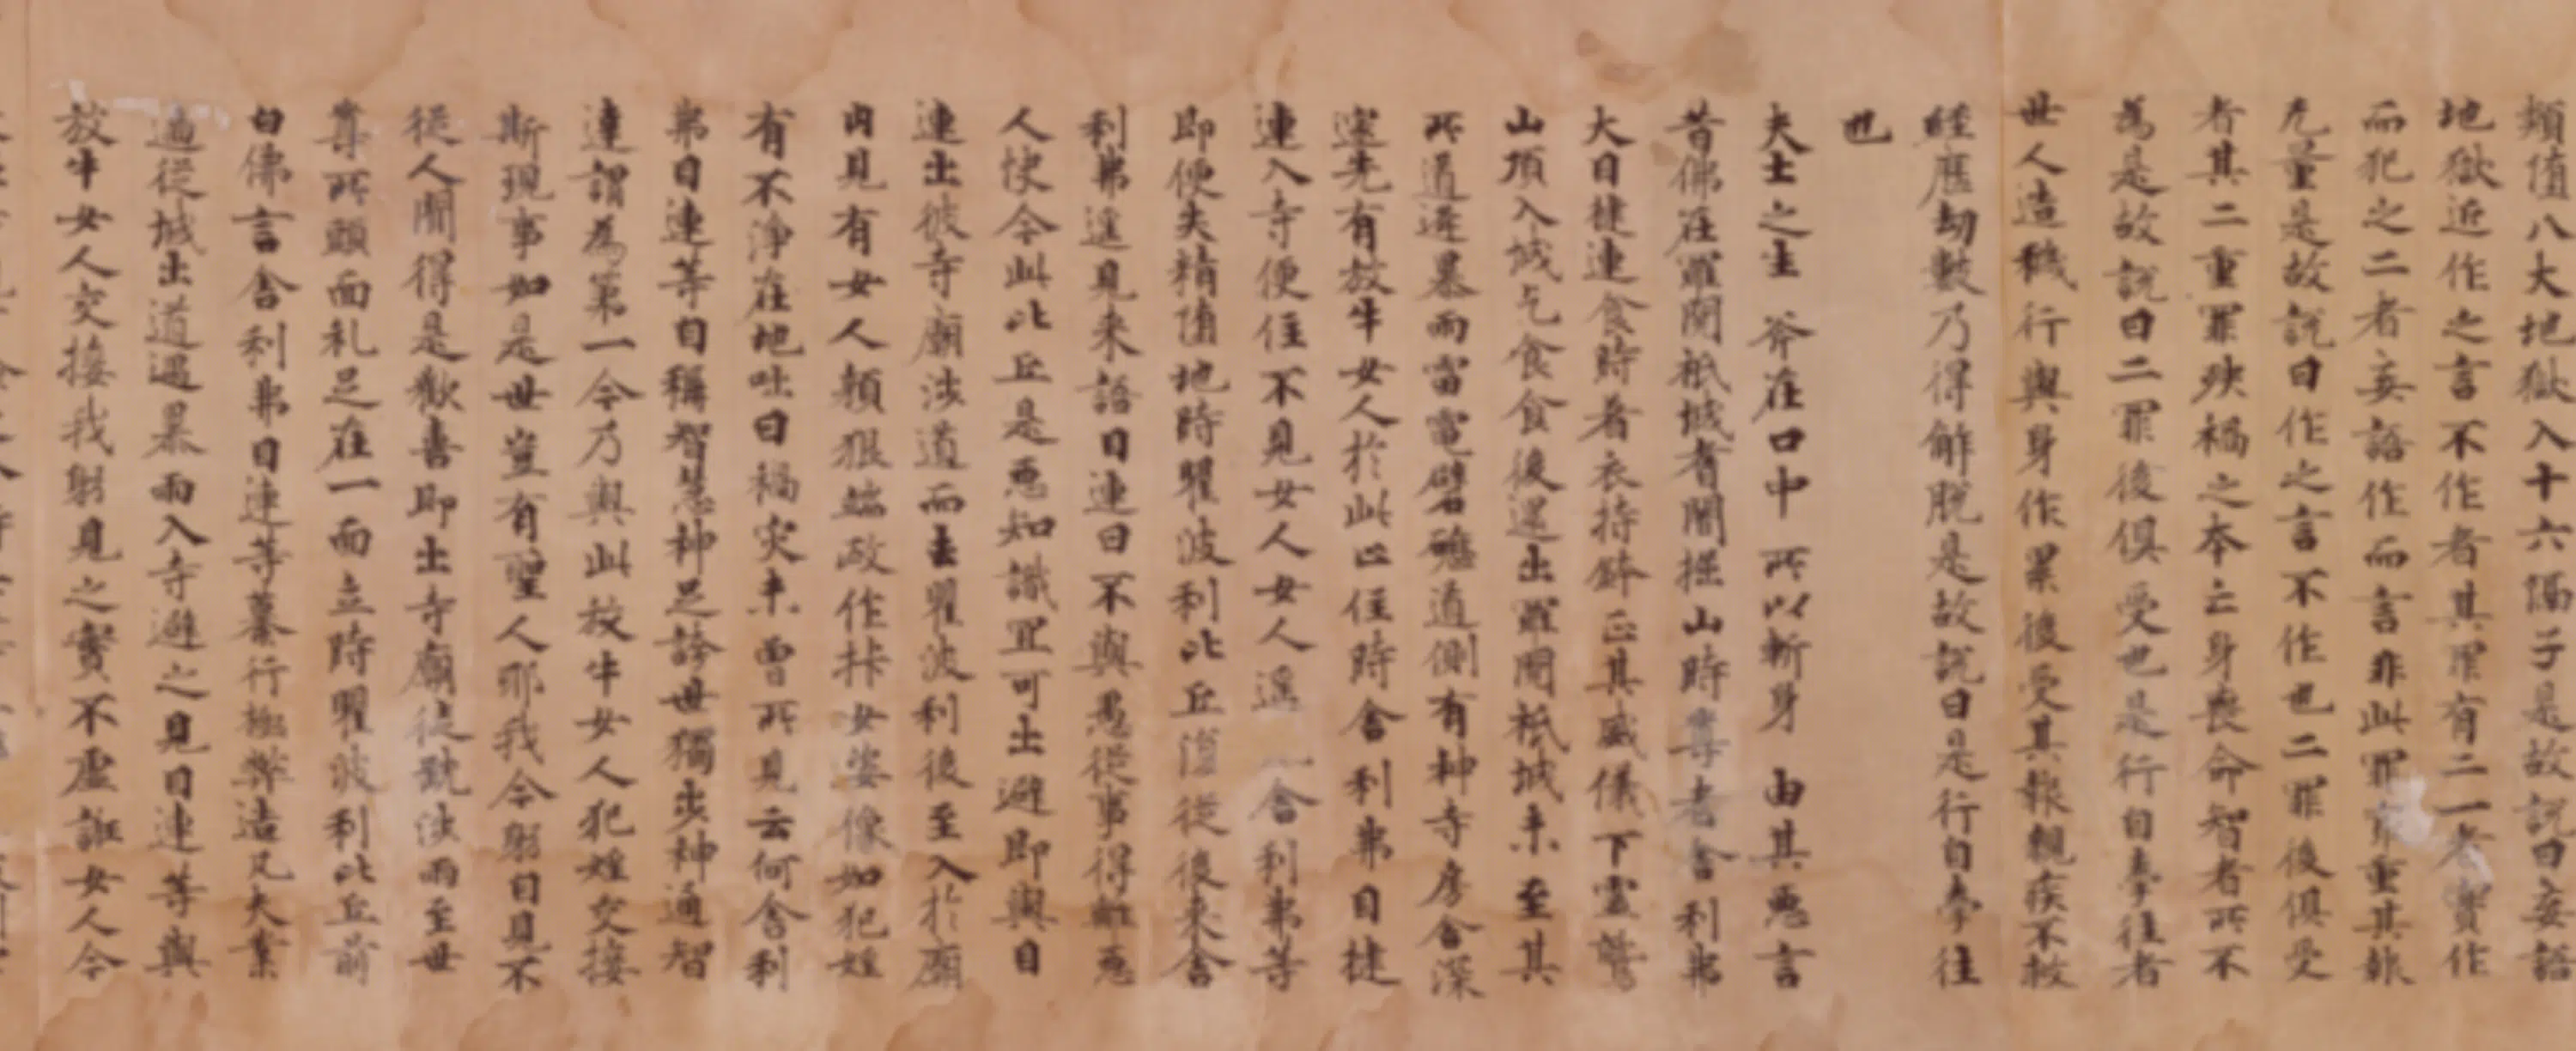 類值八大地獄入十六隔子是故説曰妄語
地獄近作之言不作者其罪有二一者實作
而犯之二者妄語作而言非此罪
重其報
无量是故説曰作之言不作也二罪後俱受
者其二重罪殃禍之本亡身喪命智者所不
為是故説曰二罪後俱受也是行自牽往者
世人造穢行與身作累後受其報親疾不救
經歷劫數乃得解脱是故説曰是行自牽往
也
夫士之生 斧在口中 所以斬身 由其惡言
昔佛在羅閱祇城耆闍掘山時尊者舍利弗
大目揵連食時着衣持鉢正其威儀下靈鷲
山頂入城乞食食後還出羅閱祇城未至其
所道遇暴雨雷電礔礰道側有神寺房舍深
邃先有放牛女人於此止住時舍利弗目揵
連入寺便住不見女人女人遥
舍利弗等
即便失精墮地時瞿波利比丘
從後来舍
利弗遥見来語目連曰不與愚從事得離惡
人快今此比丘是惡知識宜可出避即與目
連出彼寺廟涉道而去瞿波利後至入於廟
内見有女人顏狠端政作
女姿像如犯婬
有不淨在地吐曰禍災未曾所見云何舍利
弗目連等自稱智慧神足誇世獨步神通智
達謂為第一今乃與此放牛女人犯婬交接
斯現事如是世豈有聖人耶我今躬自見不
從人聞得是歡喜即出寺廟
涉雨至世
尊所頭面礼足在一面立時瞿波利比丘前
白佛言舍利弗目連等
行極弊造凡夫業
過從城出道遇暴雨入寺避之見目連等與
放牛女人交接我躬見之實不虛誑女人今